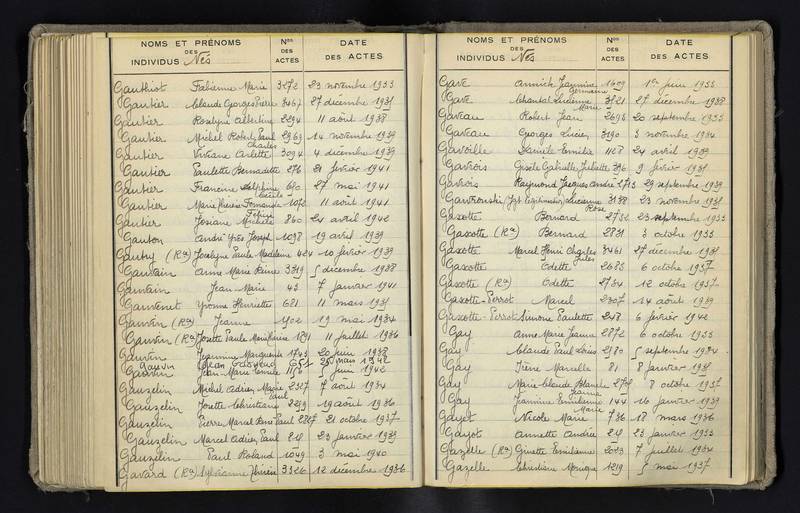 NOMS ET PRÉNOMS
DES
INDIVIDUS Nés
Nos
DES
ACTES
DATE
DES ACTES
Gauthiot Fabienne Marie 3272 23 novembre 1933
Gautier Claude Georges Pierre 3467 27 décembre 1931
Gautier Roselyne Albertine 2294 11 août 1938
Gautier Michel Robert Paul 2963 14 novembre 1939
Charles
Gautier Viviane Arlette 3094 4 décembre 1939
Gautier Paulette Bernadette 276 21 février 1941
Gautier Francine Delphine 690 27 mai 1941
Cécile
Gautier Marie Thérèse Fernande 1072 11 août 1941
Gautier Josiane Michèle 860 21 avril 1942
Gauton André Yves Joseph 1098 19 avril 1939
Gautry (Ra) Jocelyne Paule Madeleine 424 10 février 1939
Gauvain Anne Marie Reine 3319 5 décembre 1938
Gauvain Jean-Marie 43 7 janvier 1941
Gauvenet Yvonne Henriette 681 11 mars 1931
Gauvin (Ra) Jeanne 1402 19 mai 1934
Gauvin (Ra) Josette Paule 1891 11 juillet 1936
Gauvin Jeannine Marguerite 1745 20 juin 1938
Gauvin Jean-Marie Emile 1156 juin 1942
Gauzelin Michel Adrien Marie 2327 7 août 1934
Paul
Gauzelin Josette Christiane 2299 19 août 1936
Gauzelin Pierre Marcel René Paul 2867 21 octobre 1937
Gauzelin Marcel Adrien Paul 219 23 janvier 1939
Gauzelin Paul Roland 1049 3 mai 1940
Gavard (Ra) Sylvianne 3326 12 décembre 1936
NOMS ET PRÉNOMS
DES
INDIVIDUS Nés
Nos
DES
ACTES
DATE
DES ACTES
Gave Annick Jeannine 1609 1er juin 1933
Germaine
Gave Chantal Lucienne 3521 27 décembre 1938
Marie
Gaveau Robert Jean 2695 20 septembre 1933
Gaveau Georges Lucien 3190 3 novembre 1934
Gavoille Danielle Emilie 1128 24 avril 1939
Gavrois Gisèle Gabrielle Juliette 396 9 février 1931
Gavrois Raymond Jacques André 2713 29 septembre 1939
Gavronski Lucienne 3188 23 novembre 1931
Rose
Gaxotte Bernard 2732 23 septembre 1933
Gaxotte (Ra) Bernard 2831 3 octobre 1933
Gaxotte Marcel Henri Charles 3461 27 décembre 1931
Jules
Gaxotte Odette 2685 6 octobre 1937
Gaxotte (Ra) Odette 2734 12 octobre 1937
Gaxotte-Perrot Marcel 2307 14 août 1939
Gaxotte-Perrot Simone Paulette 248 6 février 1942
Gay Anne Marie Jeanne 2872 6 octobre 1933
Gay Claude Paul Louis 2980 5 septembre 1934
Gay Irène Marcelle 81 8 janvier 1931
Gay Marie Claude Blanche 2708 8 octobre 1937
Jeanne
Gay Jeannine Emilienne 144 16 janvier 1939
Marie
Gayot Nicole Marie 736 18 mars 1936
Gayot Annette Andrée 219 23 janvier 1933
Gazelle (Ra) Ginette Emilienne 2023 7 juillet 1934
Gazelle Christiane Monique 1219 5 mai 1937